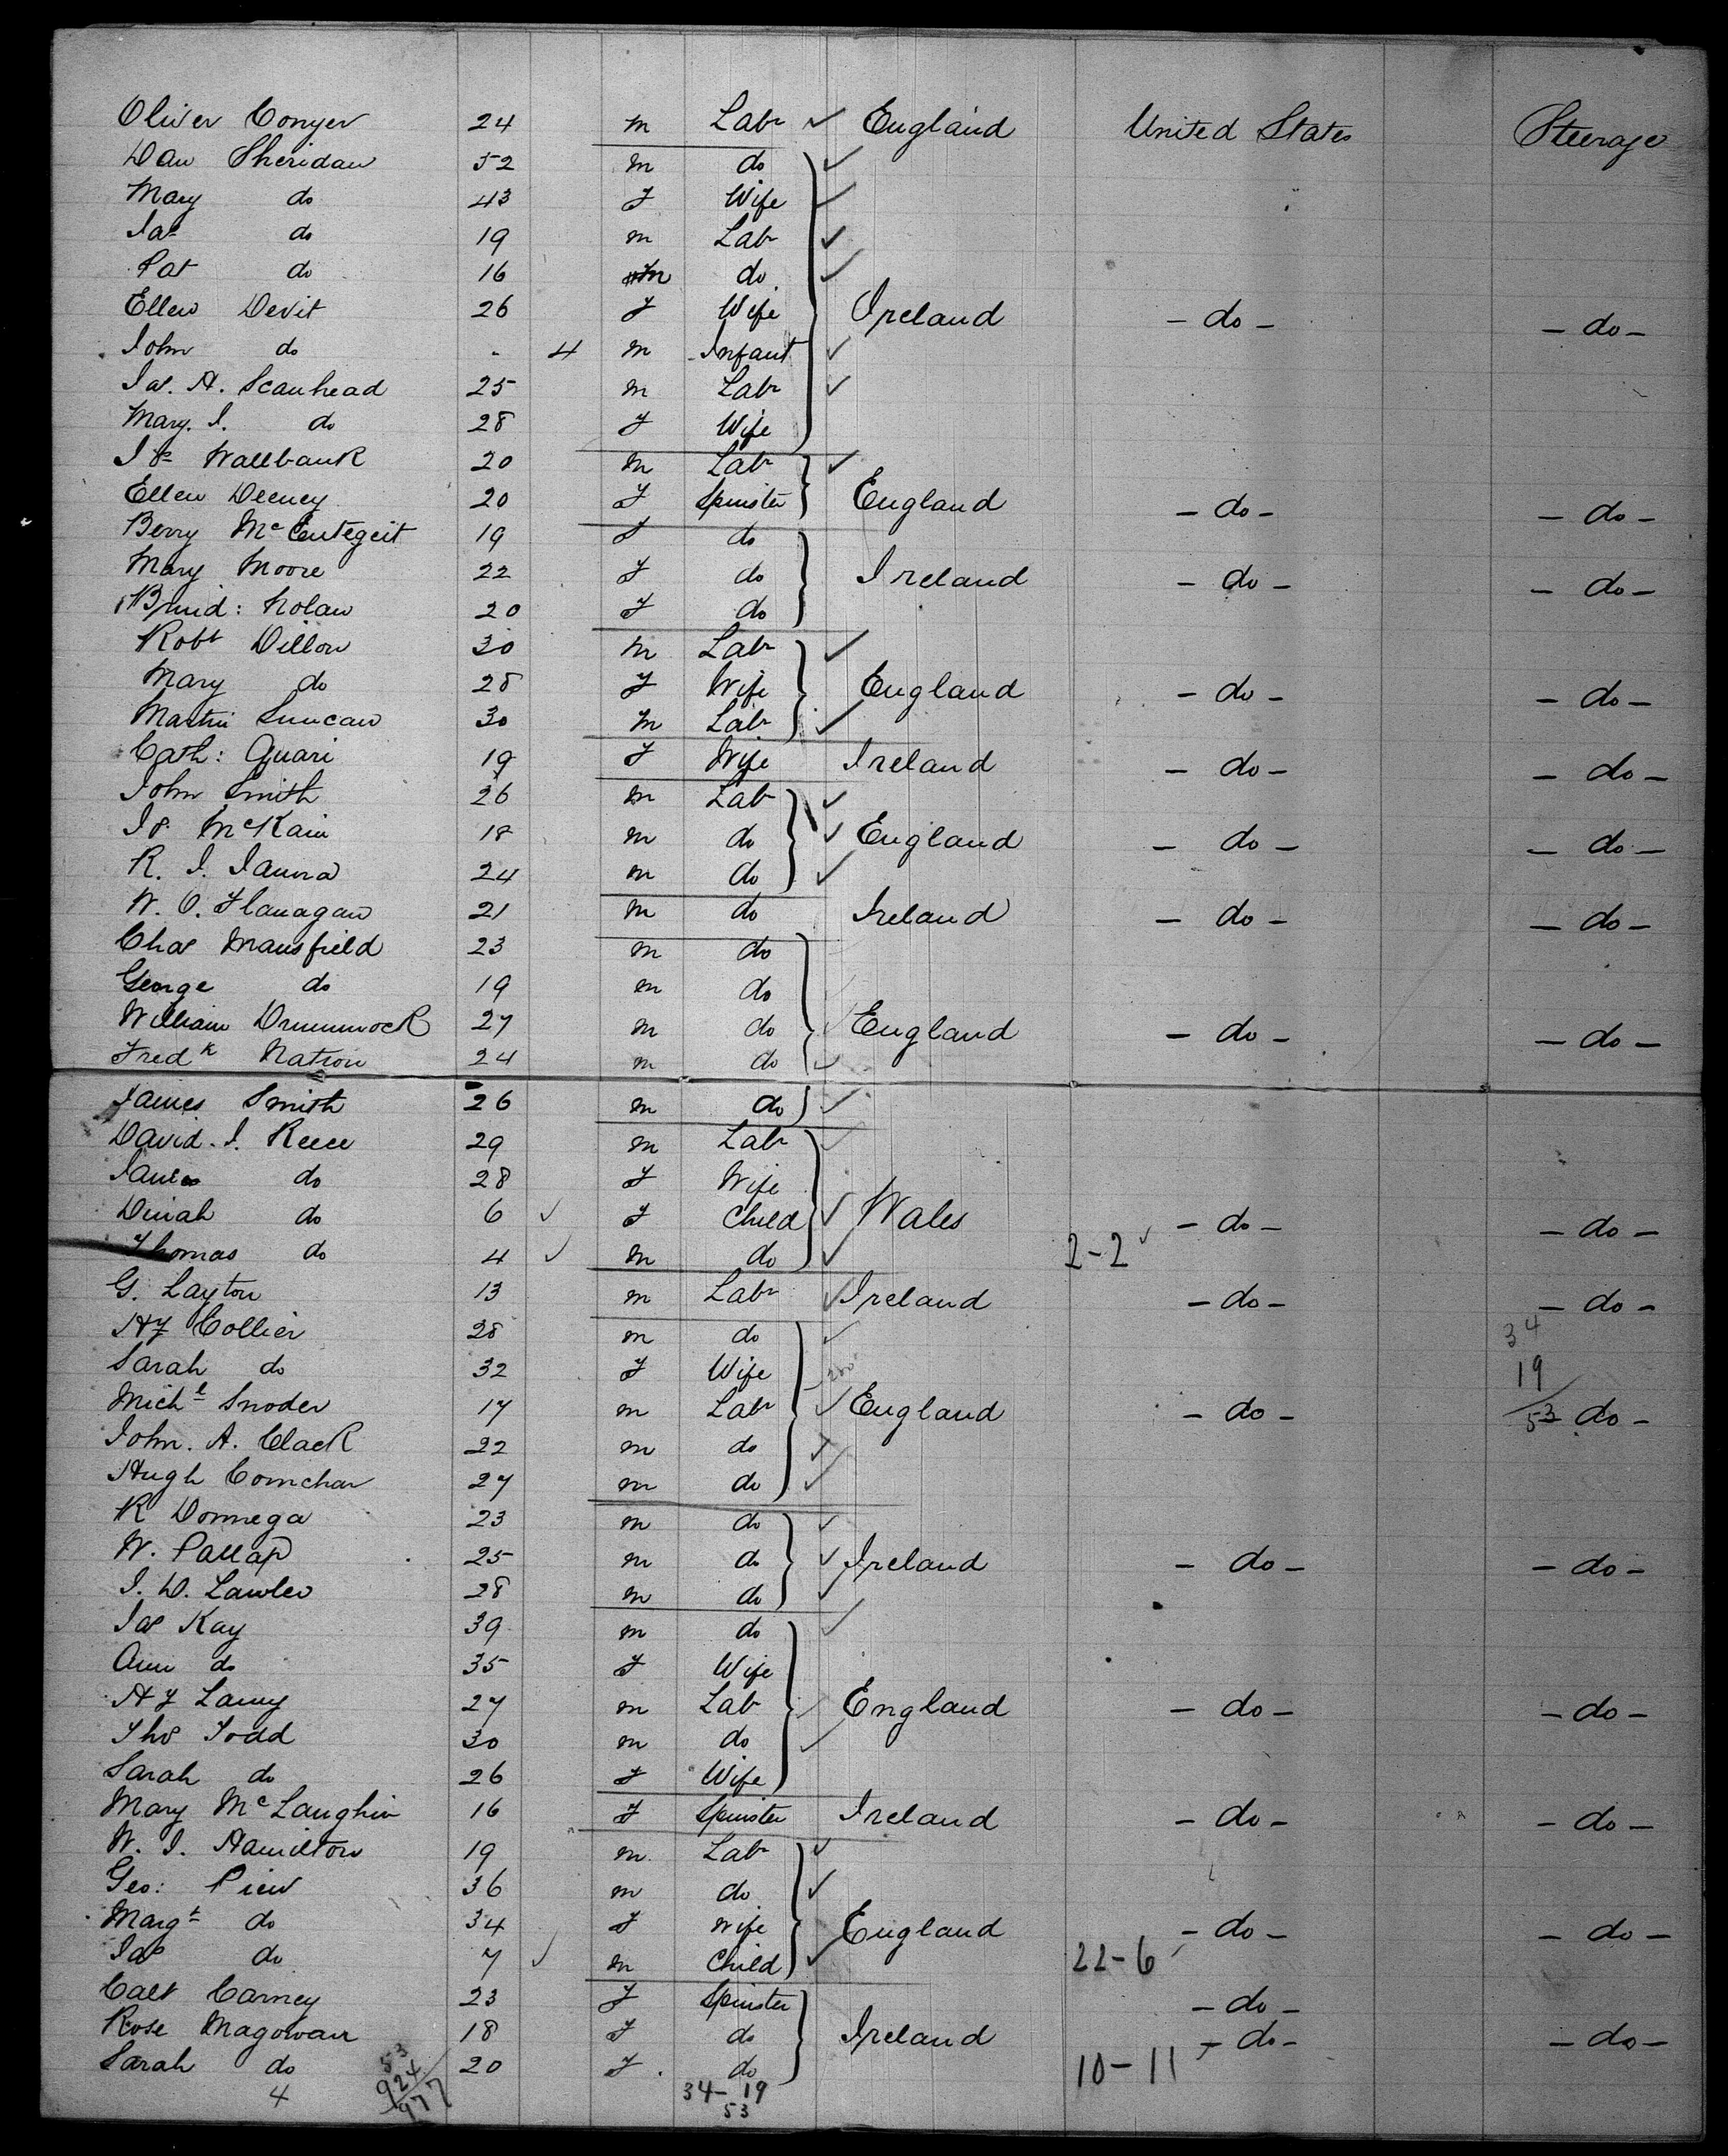 Oliver Conyer 24 m Labr England United States Steerage
Dan Sheridan 52 m do
Mary do 43 f Wife
Jas do 19 m Labr
Pat do 16 m do
Ellen Devit 26 f Wife Ireland - do - - do -
John do 4 m Infant
Jas. A. Scanhead 25 m Labr
Mary. J. do 28 f Wife
Js Wallbank 20 m Labr
Ellen Deeney 20 f Spinster England - do - - do -
Berry McEntegeit 19 f do
Mary Moore 22 f do Ireland - do - - do -
Brid: Nolan 20 f do
Robt Dillon 30 m Labr
Mary do 28 f Wife England - do - - do -
Martin Duncan 30 m Labr
Cath: Quari 19 f Wife Ireland - do - - do -
John Smith 26 m Labr
Js McKain 18 m do England - do - - do -
R. J. 24 m do
W. O. Flanagan 21 m do Ireland - do - - do -
Chas Mansfield 23 m do
George do 19 m do
William Drummock 27 m do England - do - - do -
Fredk Nation 24 m do
James Smith 26 m do
David. J. Reece 29 m Labr
do 28 f Wife
Dinah do 6 f Child Wales - do - - do -
Thomas do 4 m do 2-2
G. Layton 13 m Labr Ireland - do - - do -
Hy Collier 28 m do 34
Sarah do 32 f Wife 19
Michl Snoder 17 m Labr England - do - 53 do -
John. A. Clack 22 m do
Hugh Comchar 27 m do
R Donnega 23 m do
W. 25 m do Ireland - do - - do -
J. D. Lawler 28 m do
Jas Kay 39 m do
Ann do 35 f Wife
Hy Lamy 27 m Labr England - do - - do -
Thos Todd 30 m do
Sarah do 26 f Wife
Mary McLaughin 16 f Spinster Ireland - do - - do -
W. J. Hamilton 19 m Labr
Geo: Piew 36 m do
Margt do 34 f Wife England - do - - do -
Jas do 7 m Child 22-6
Cath Carney 23 f Spinster - do -
Rose Magowan 18 f do Ireland - do - - do -
Sarah do 20 f do 10-11
4 53 924 977 34-19
53